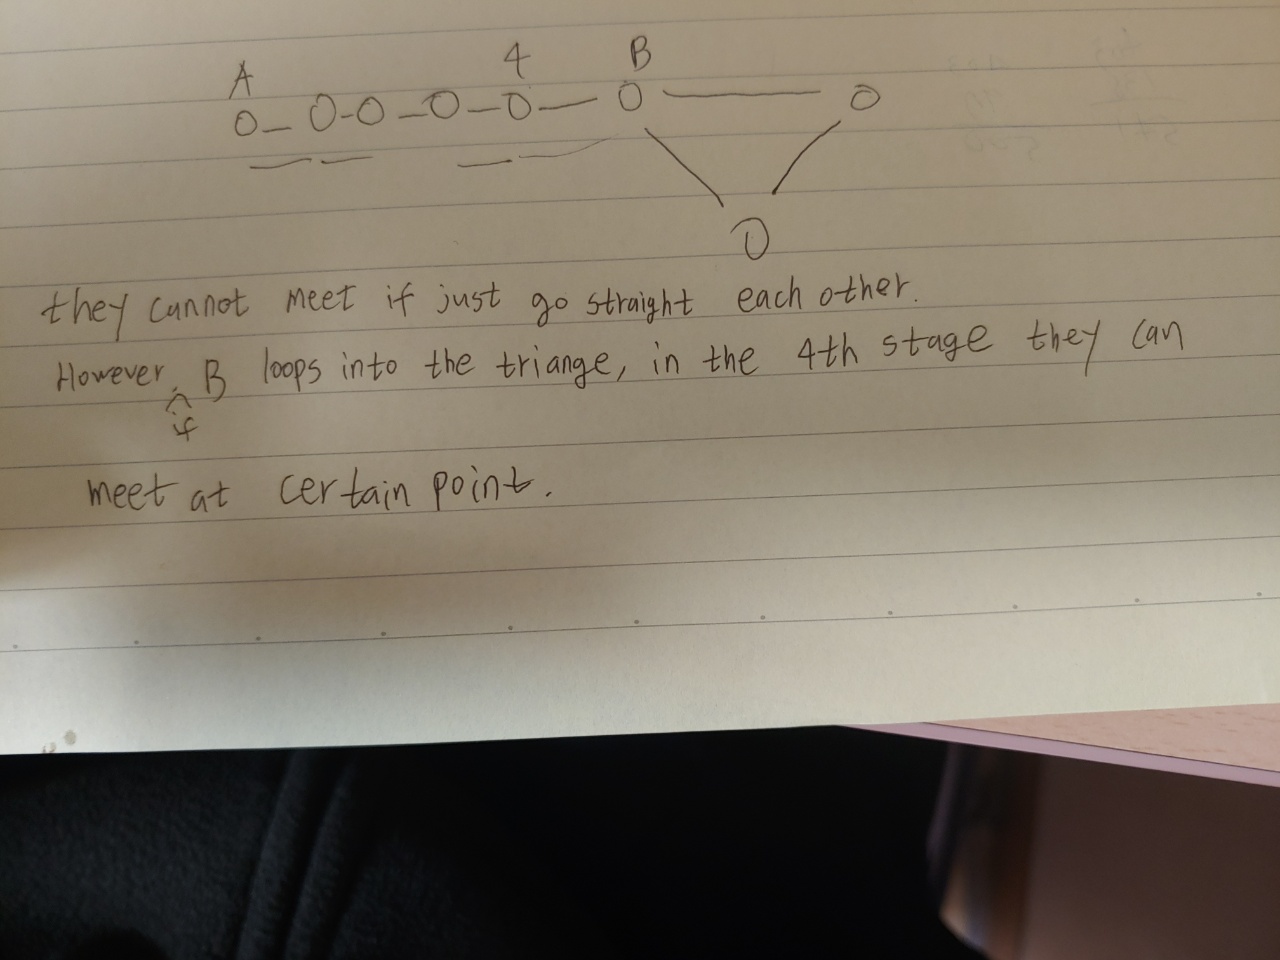 A 4 B
they cannot meet if just go straight each other.
However, B loops into the triange, in the 4th stage they can
if
meet at certain point.